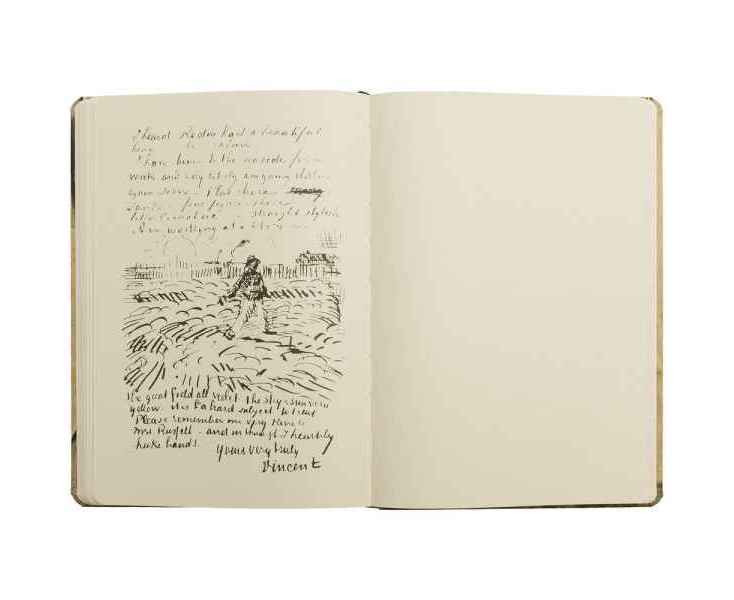 I heard Rodin had a beautiful
head at the salon
I have been to the seaside for a
week and very likely am going thither
again soon. - Flat shore
sands - fine figures there
like Cimabue - straight stylish
Am working at a Sower
the great field all violet the sky & sun very
yellow. it is a hard subject to treat
Please remember me very kindly to
Mrs Russell - and in thought I heartily
shake hands.
Yours very truly
Vincent